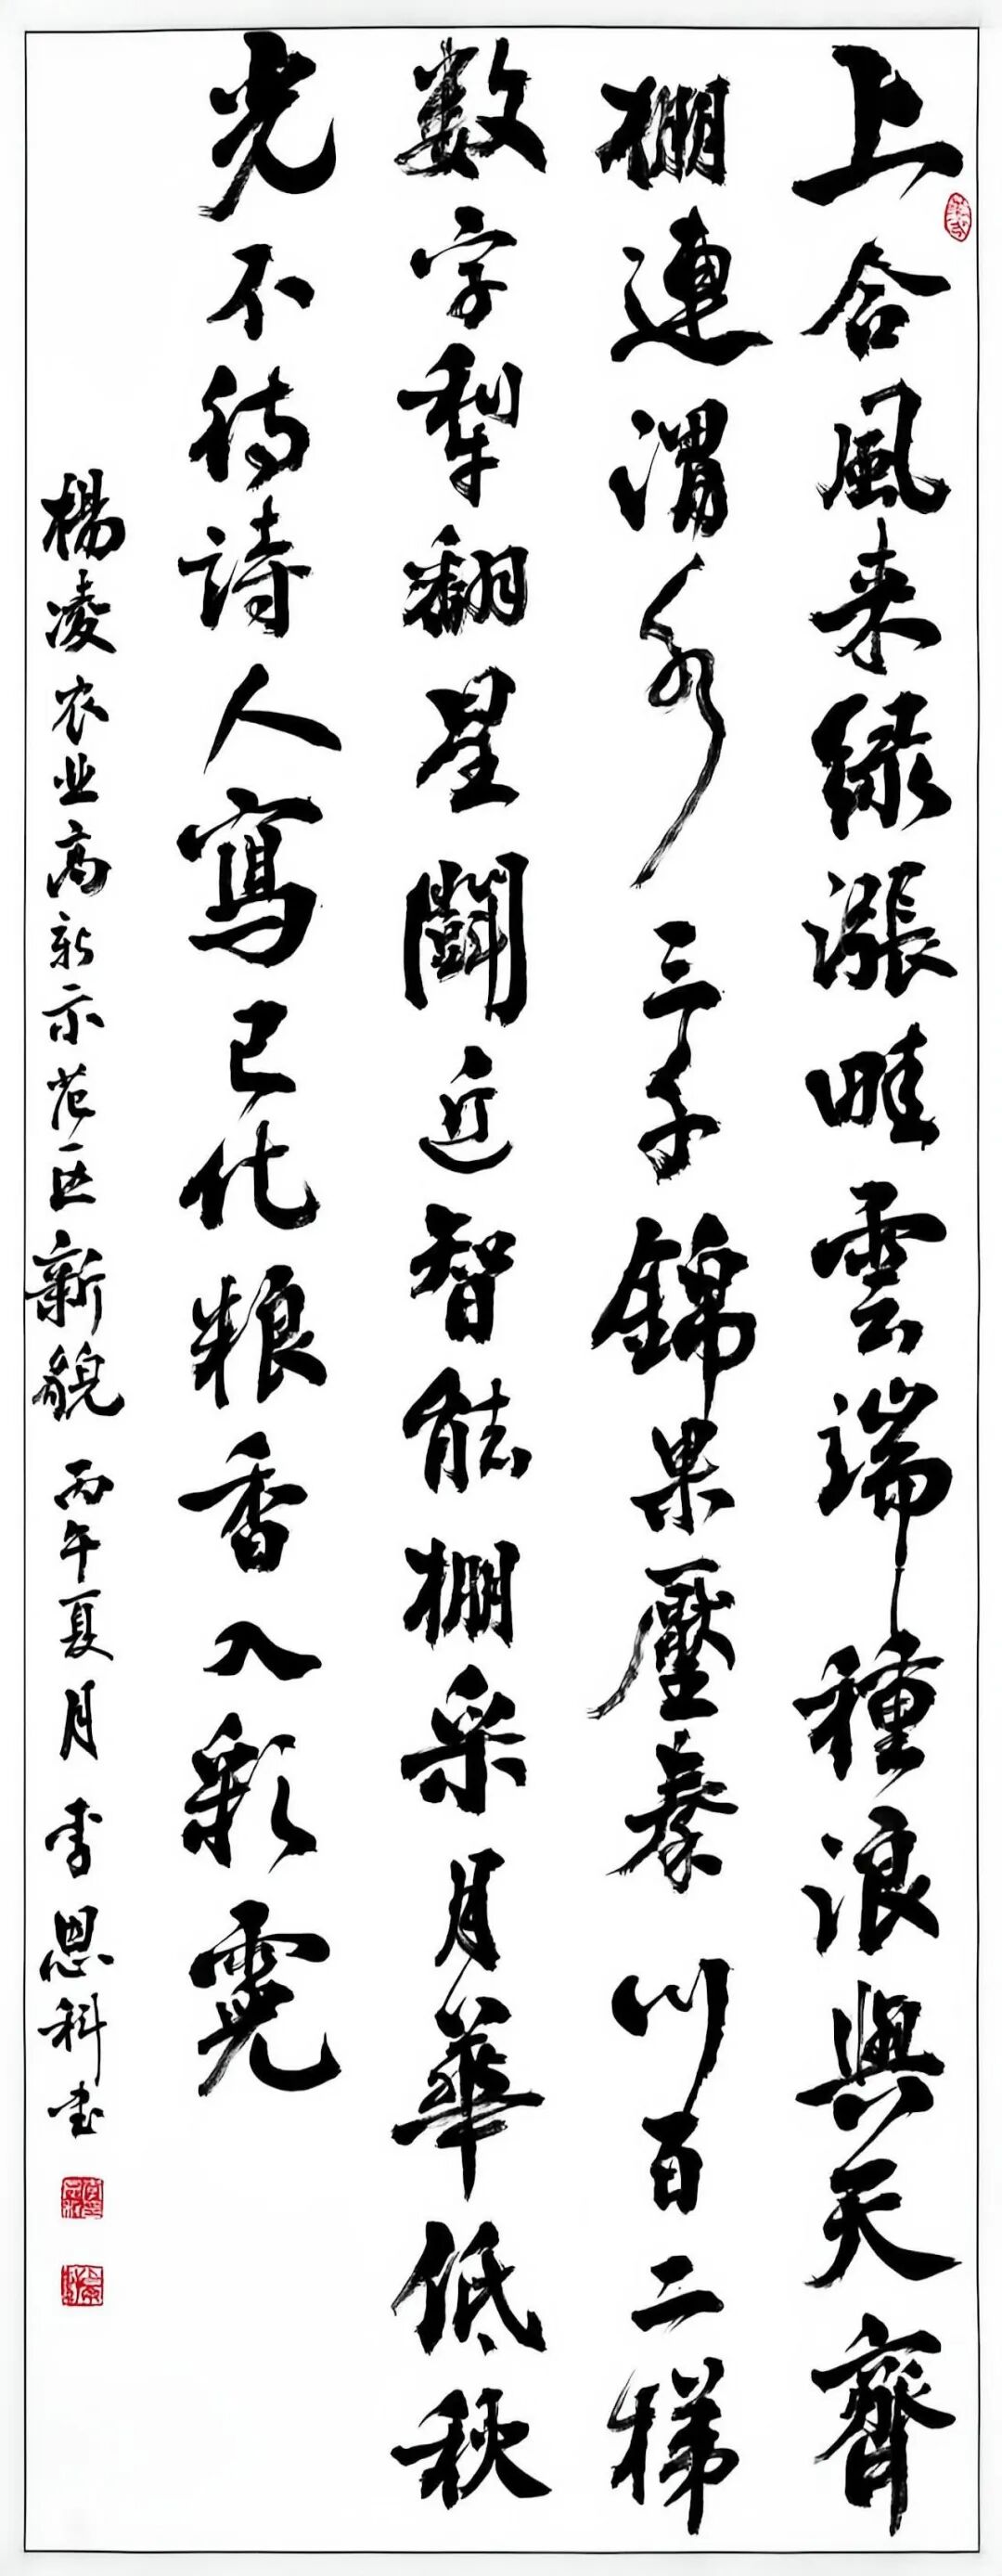 上合風来緑漲畦雲端種浪與天齊
棚連渭水三千錦果壓秦川百二梯
数字犁翻星闘近智能棚采月華低秋
光不待詩人寫已化粮香入彩霓
楊凌农业高新示范区新貌 丙午夏月 李恩科书